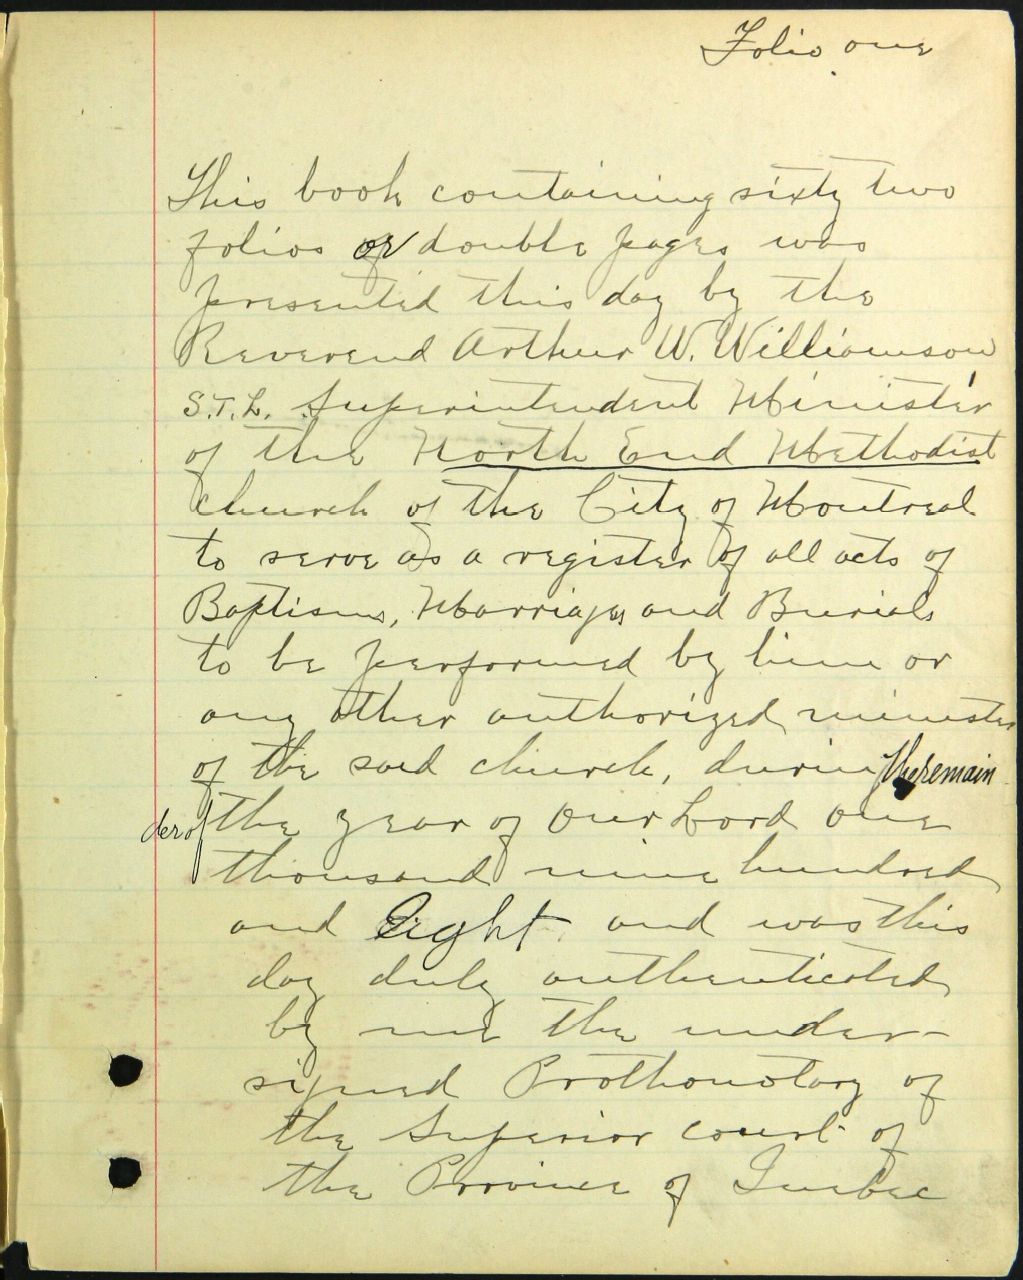 Folio one
This book containing sixty two
folios or double pages was
presented this day by the
Reverend Arthur W. Williamson
S.T.L. Superintendent Minister
of the North End Methodist
church of the City of Montreal
to serve as a register of all acts of
Baptisms, Marriages and Burials
to be performed by him or
any other authorized minister
of the said church, during the remain
der of the year of Our Lord one
thousand nine hundred
and Eight and was this
day duly authenticated
by me the under-
signed Prothonotary of
the Superior court of
the Province of Quebec